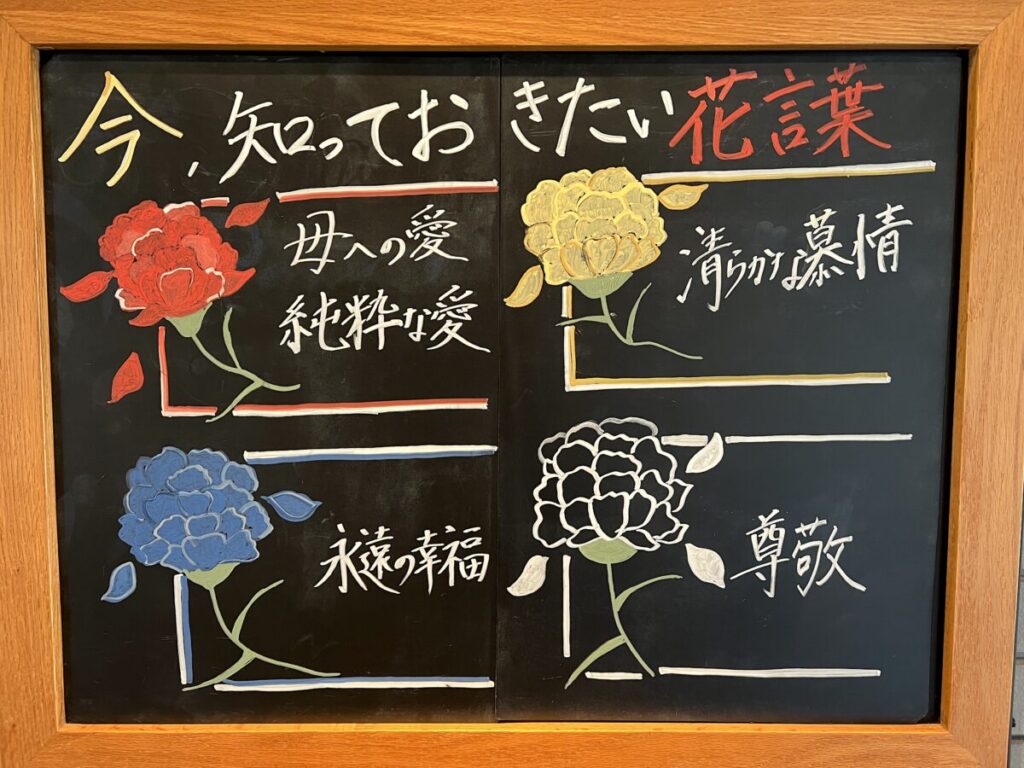 今、知っておきたい花言葉
母への愛
純粋な愛
清らかな慕情
永遠の幸福
尊敬